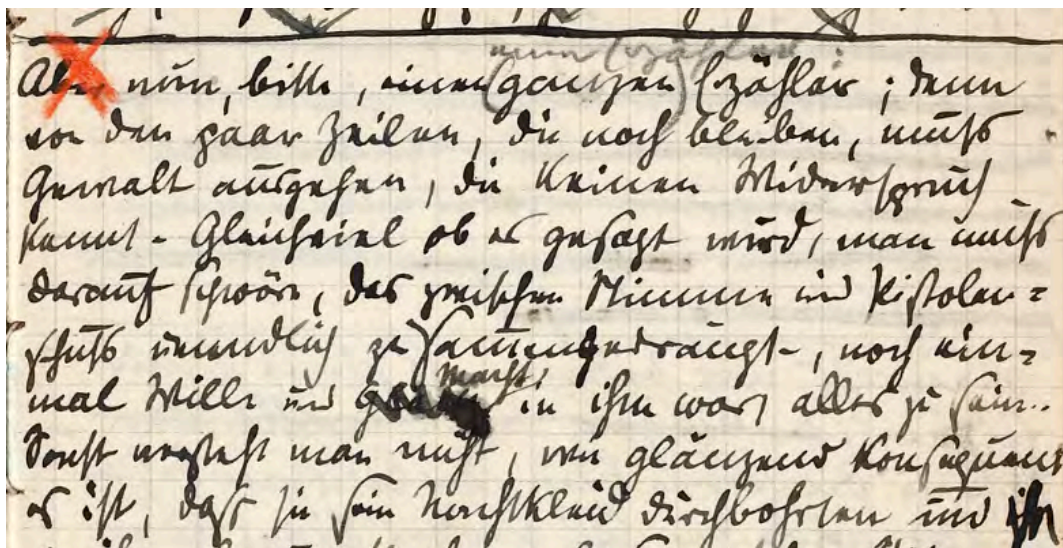 einen Erzähler :
Aber nun, bitte, einen (ganzen) Erzähler ; denn
von den paar Zeilen, die noch bleiben, muß
Gewalt ausgehen, die keinen Widerspruch
kennt. Gleichviel ob es gesagt wird, man muß
darauf schwören, das zwischen Stimme und Pistolen=
schuß unendlich zusammengedrängt, noch ein=
mal Wille und Macht in ihm war, alles zu sein..
Sonst versteht man nicht, wie glänzend konsequent
es ist, daß sie sein Nachtkleid durchbohrten und ihn